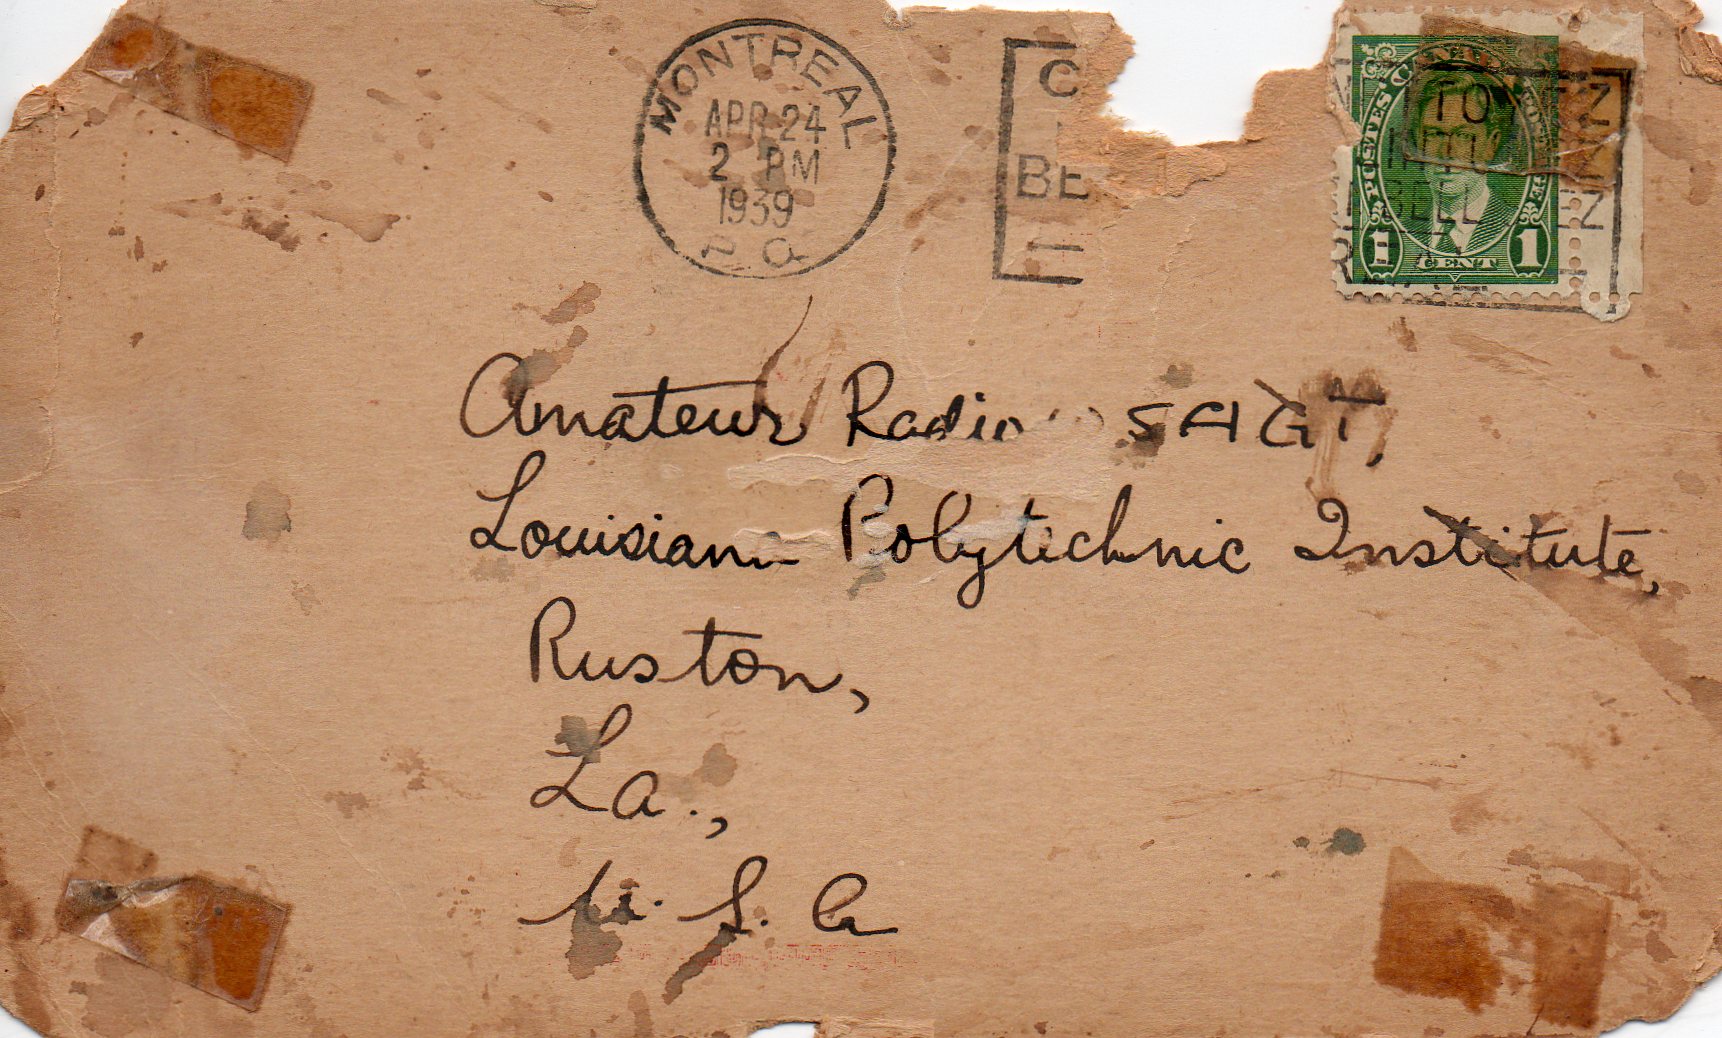 MONTREAL
APR 24
2 PM
1939
P.Q.
BE
CANADA
POSTES
TO
BELL
EZ
1 CENT 1
Amateur Radio 5AGT,
Louisiana Polytechnic Institute,
Ruston,
La.,
U. S. A